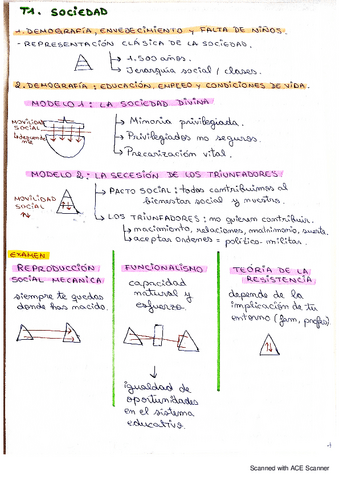 T1. SOCIEDAD
1. DEMOGRAFÍA, ENVEJECIMIENTO y FALTA DE NIÑOS.
- REPRESENTACIÓN CLÁSICA DE LA SOCIEDAD.
1.500 años.
Jerarquía social / clases.
2. DEMOGRAFÍA: EDUCACIÓN, EMPLEO y CONDICIONES DE VIDA.
MODELO 1: LA SOCIEDAD DIVINA
MOVILIDAD SOCIAL
Minoría privilegiada.
Privilegiados no seguros.
Precarización vital.
MODELO 2: LA SECESIÓN DE LOS TRIUNFADORES
MOVILIDAD SOCIAL
PACTO SOCIAL: todos contribuimos al
bienestar social y nuestro.
LOS TRIUNFADORES: no quieren contribuir.
nacimiento, relaciones, matrimonio, suerte.
aceptar ordenes = político. militar.
EXAMEN
REPRODUCCIÓN
SOCIAL MECANICA
siempre te quedas
donde has nacido.
FUNCIONALISMO
capacidad
natural y
esfuerzo.
igualdad de
oportunidades
en el sistema
educativo.
TEORÍA DE LA
RESISTENCIA
depende de la
implicación de tu
entorno (fam, profes)
Scanned with ACE Scanner